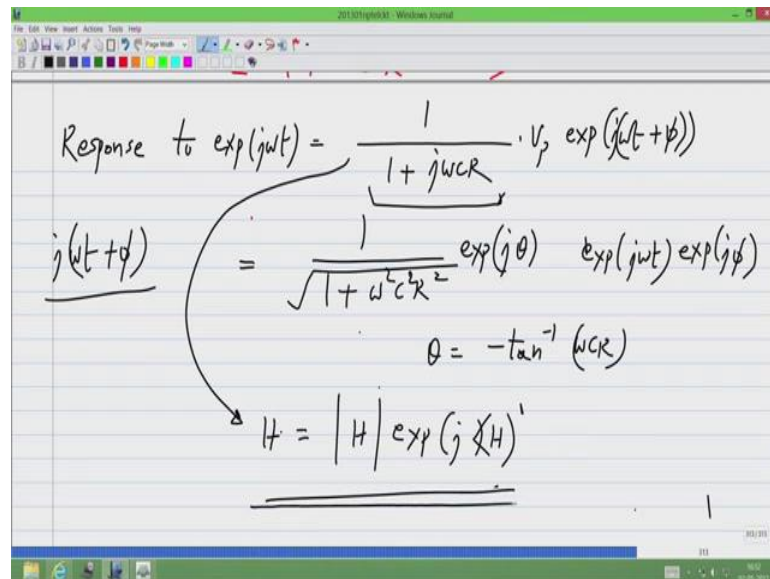 201301nptelckt - Windows Journal
File Edit View Insert Actions Tools Help
Page Width
B I
Response to exp(jωt) = 1 / (1 + jωCR) · Vp exp(j(ωt + ϕ))
j(ωt + ϕ) = 1 / √(1 + ω²C²R²) exp(jθ) exp(jωt) exp(jϕ)
θ = -tan⁻¹ (ωCR)
H = |H| exp(j ∡H)
1
313/313
313
16:52